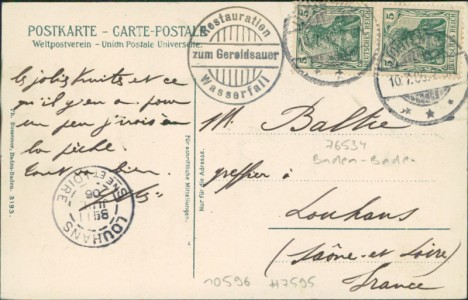 POSTKARTE - CARTE-POSTALE
Weltpostverein - Union Postale Universelle
Restauration
zum Geroldsauer
Wasserfall
5
5
DEUTSCHES REICH
DEUTSCHES REICH
les jolis fruits et ce
qu'il y en a pour
un peu j'irais à
la pêche
tout
LOUHANS
SAÔNE ET LOIRE
Für schriftliche Mitteilungen.
Nur für die Adresse.
M. Balthe
76534
Baden-Baden
greffier à
Louhans
(Saône et Loire)
France
10596 #7595